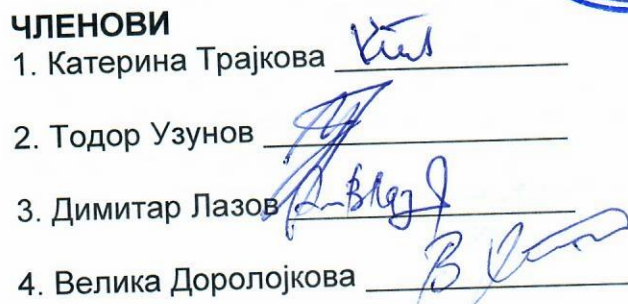 ЧЛЕНОВИ
1. Катерина Трајкова
2. Тодор Узунов
3. Димитар Лазов
4. Велика Доролојкова